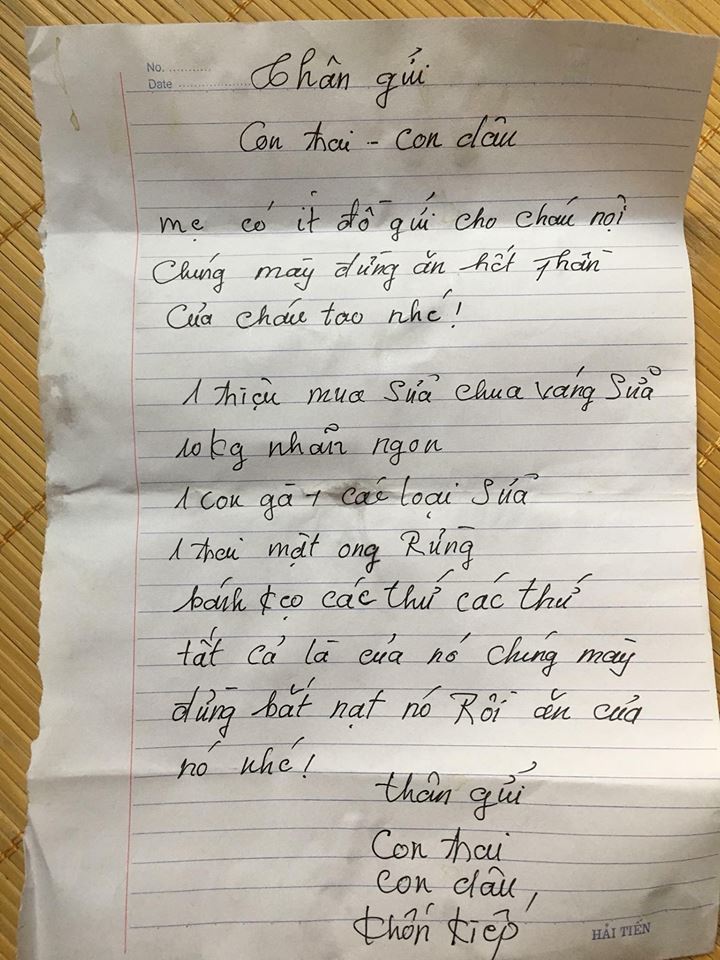 No. ...........
Date ...........................
Thân gửi
Con trai - con dâu
mẹ có ít đồ gửi cho cháu nội
Chúng mày đừng ăn hết phần
Của cháu tao nhé!
1 triệu mua Sữa chua váng Sữa
10kg nhãn ngon
1 con gà + các loại Sữa
1 trai mật ong Rừng
bánh kẹo các thứ các thứ
tất cả là của nó chúng mày
đừng bắt nạt nó Rồi ăn của
nó nhé!
thân gửi
Con trai
con dâu,
khốn kiếp
HẢI TIẾN